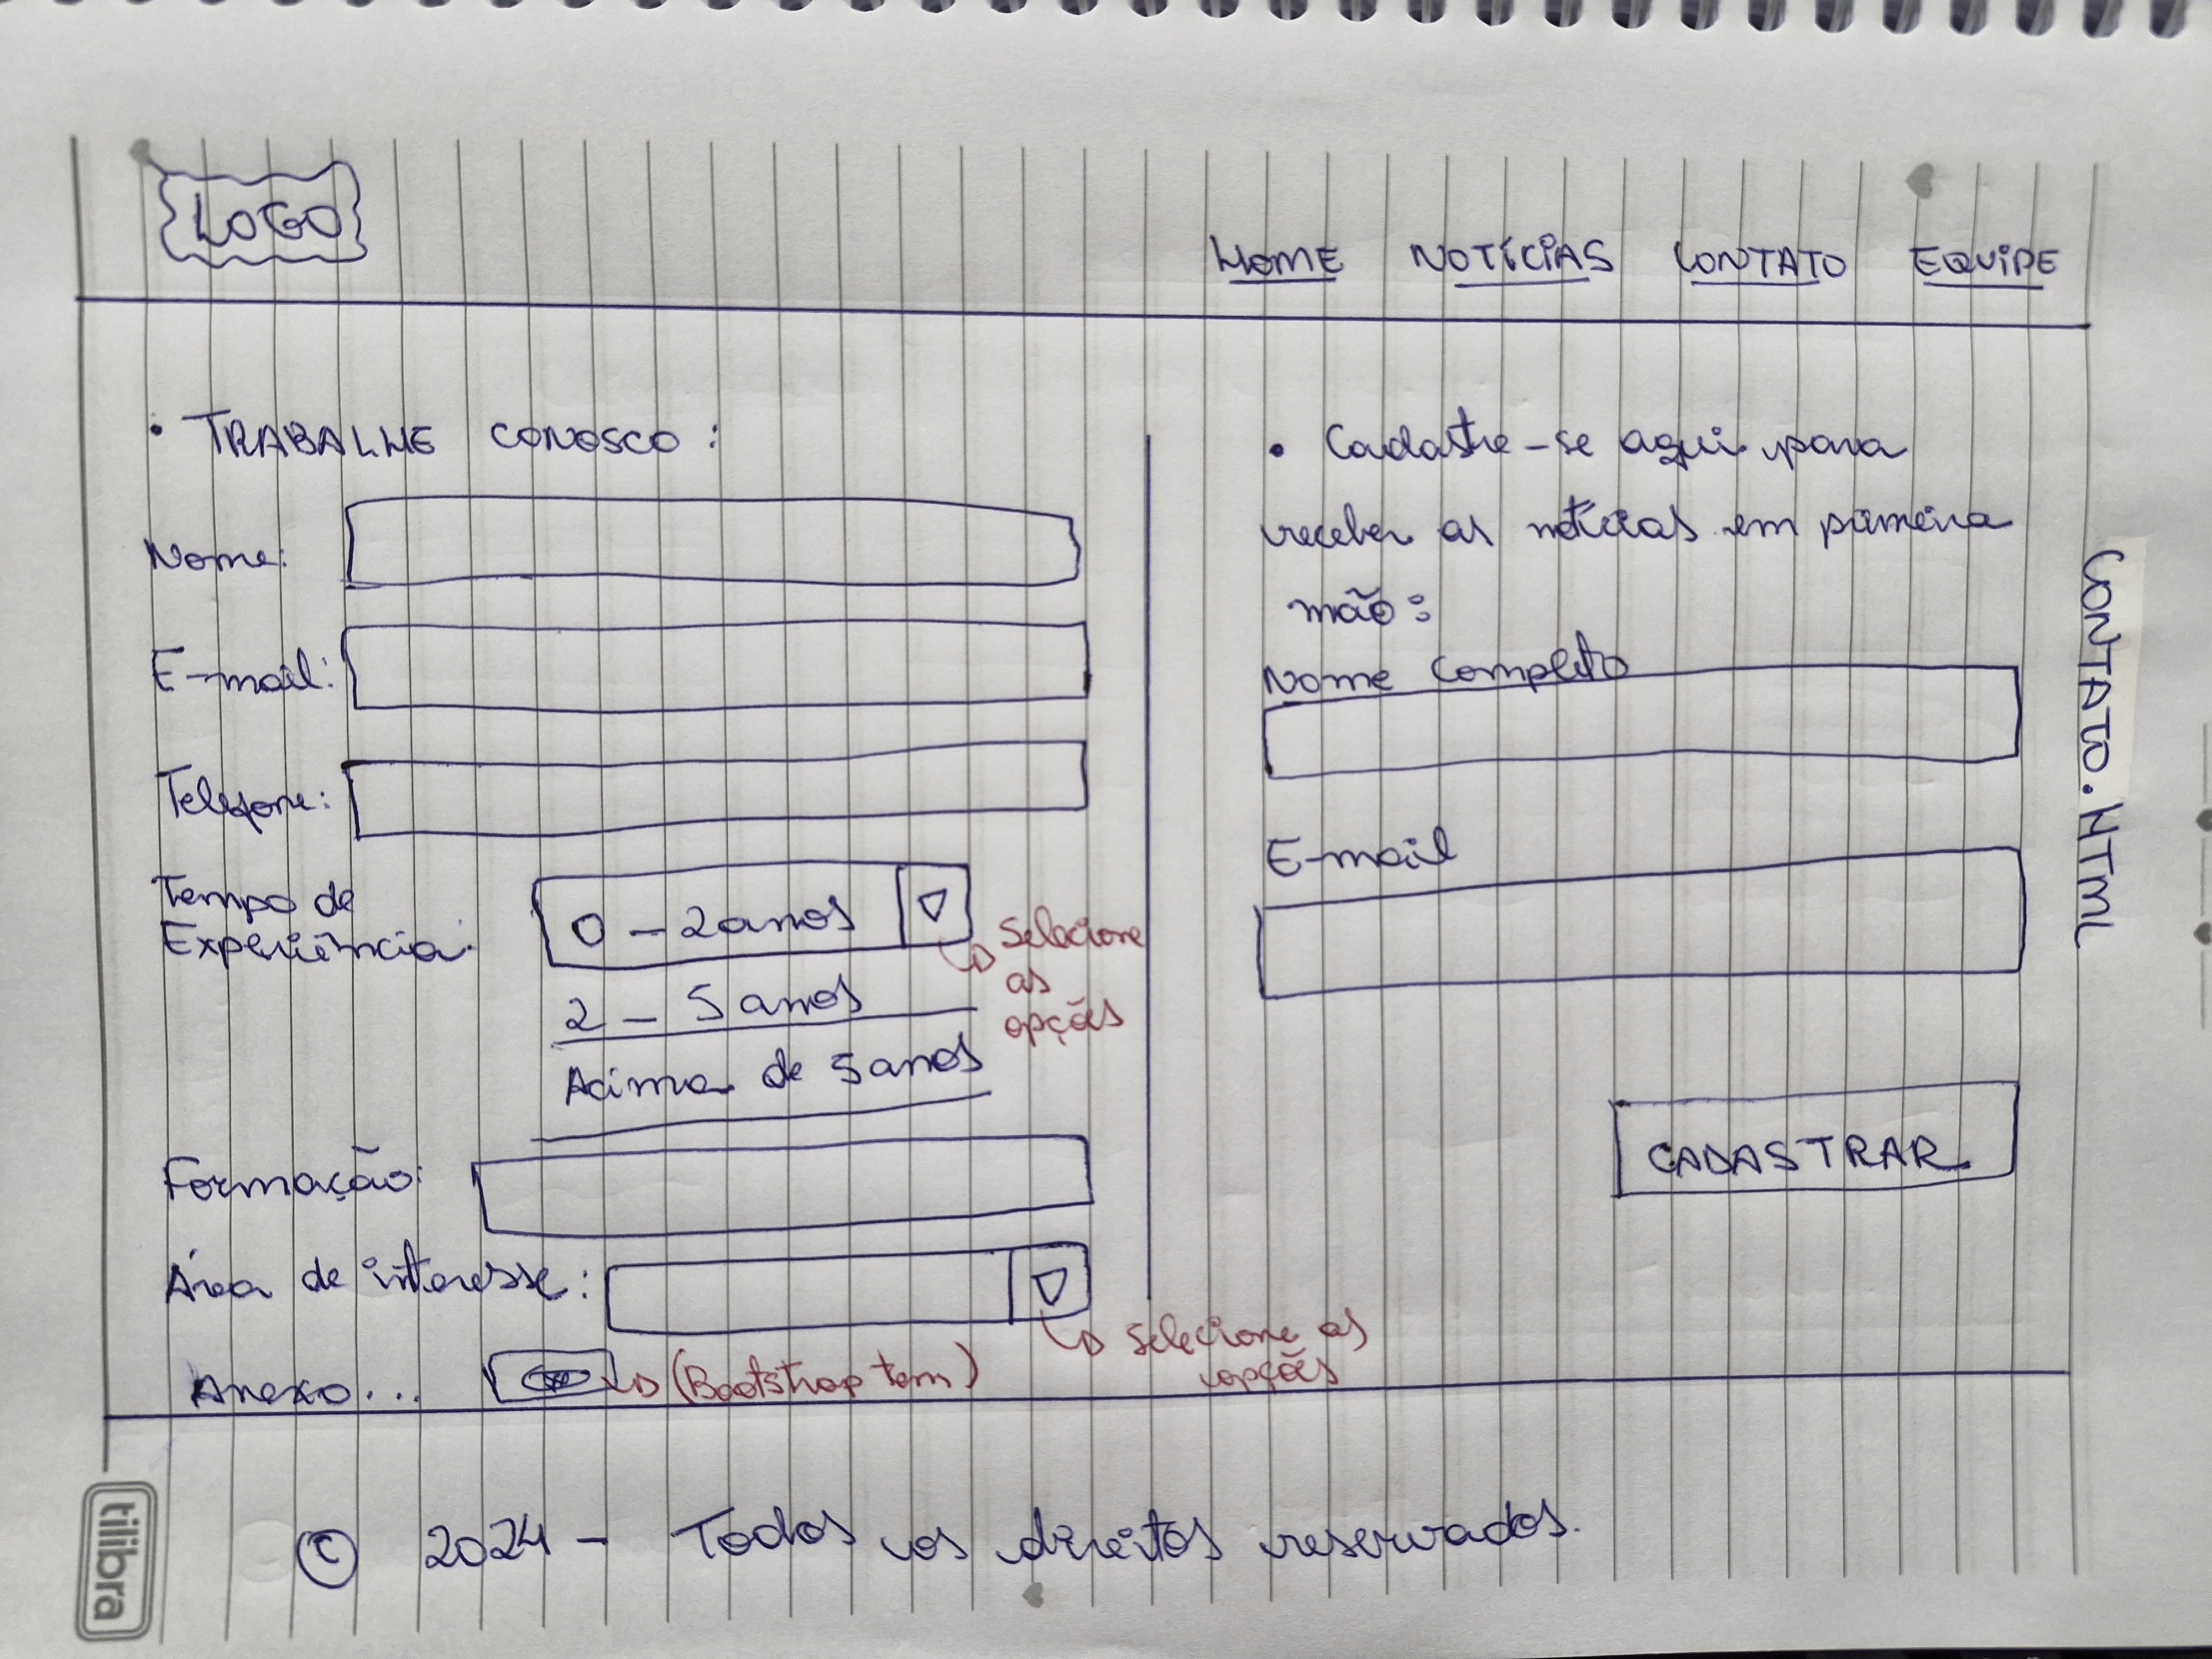 LOGO
HOME NOTÍCIAS CONTATO EQUIPE
• TRABALHE CONOSCO:
Nome:
E-mail:
Telefone:
Tempo de
Experiência:
0 - 2 anos
2 - 5 anos
Acima de 5 anos
Selecione
as
opções
Formação:
Área de interesse:
Selecione as
opções
Anexo...
(Bootstrap tem)
• Cadastre-se aqui para
receber as notícias em primeira
mão:
Nome Completo
E-mail
CADASTRAR
CONTATO.HTML
© 2024 - Todos os direitos reservados.
tilibra